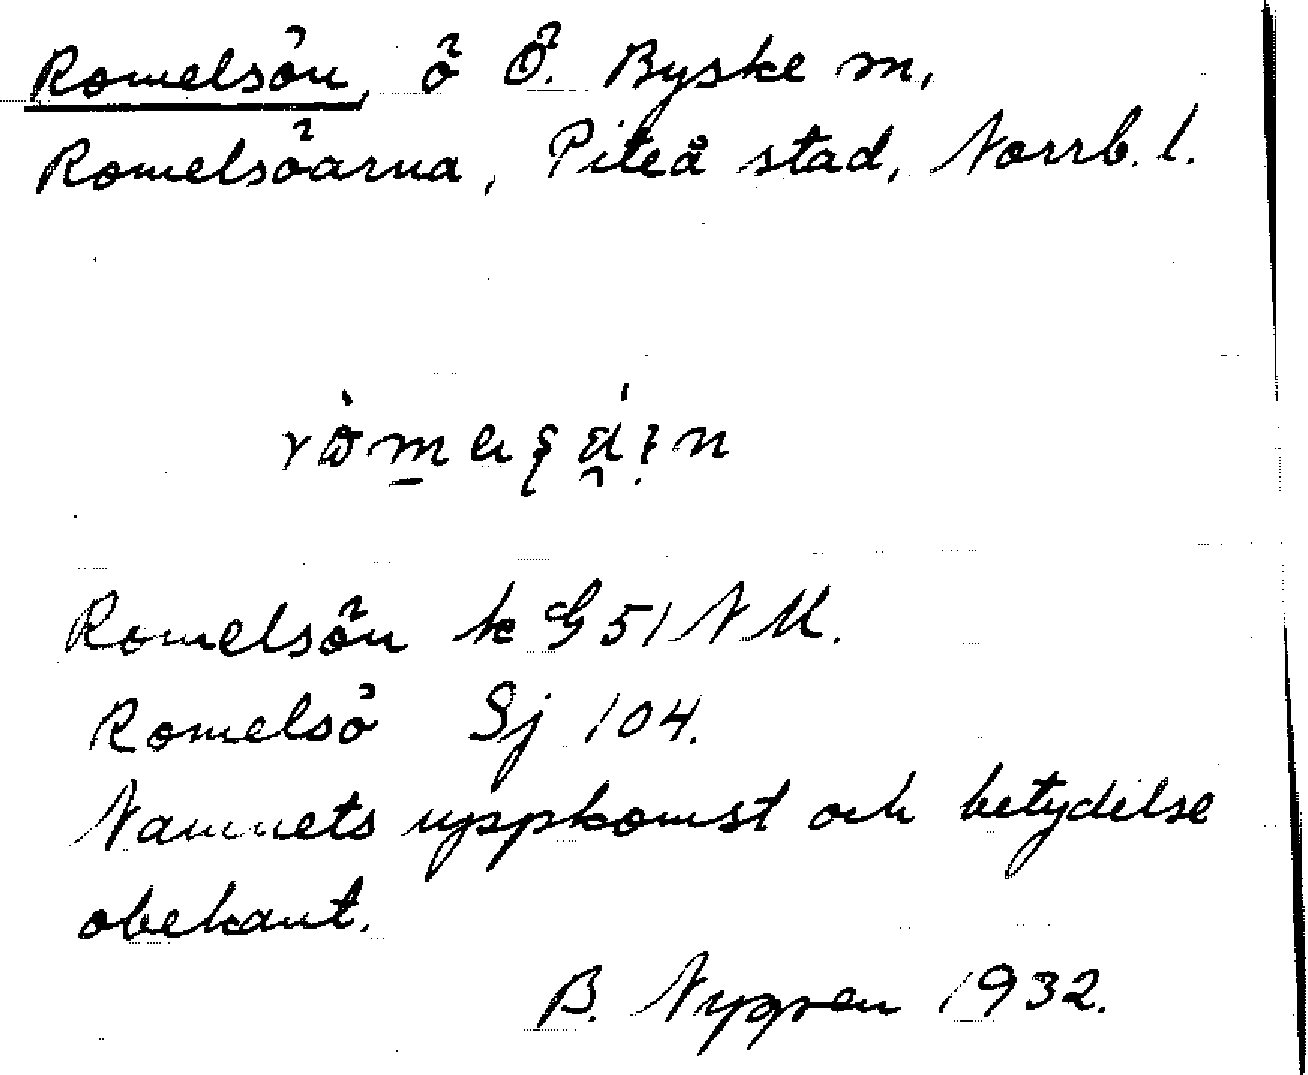 Romelsön, ö Ö. Byske m,
Romelsöarna, Piteå stad, Norrb. l.
Romelsön k G 51 NM.
Romelsö Sj 104.
Namnets uppkomst och betydelse
obekant.
B. Nygren 1932.